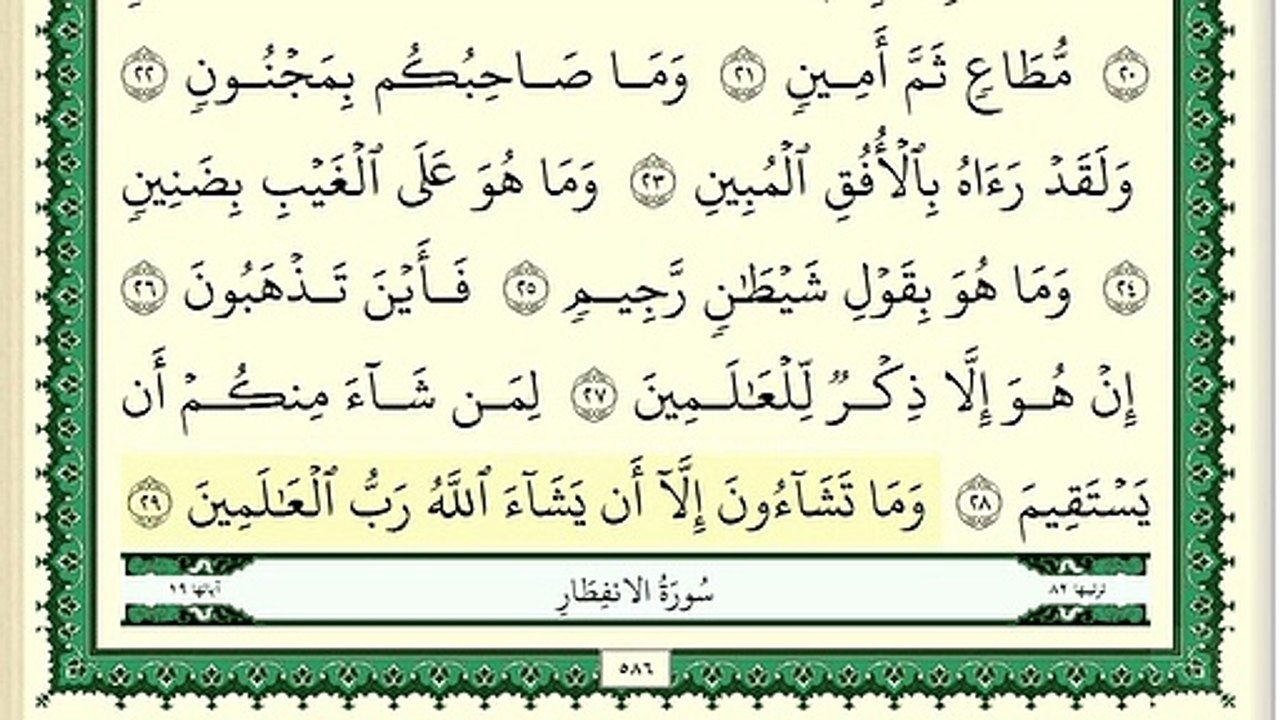 ٢٠ مُّطَاعٍ ثَمَّ أَمِينٍ ٢١ وَمَا صَاحِبُكُم بِمَجْنُونٍ ٢٢
وَلَقَدْ رَءَاهُ بِٱلْأُفُقِ ٱلْمُبِينِ ٢٣ وَمَا هُوَ عَلَى ٱلْغَيْبِ بِضَنِينٍ
٢٤ وَمَا هُوَ بِقَوْلِ شَيْطَٰنٍ رَّجِيمٍ ٢٥ فَأَيْنَ تَذْهَبُونَ ٢٦
إِنْ هُوَ إِلَّا ذِكْرٌ لِّلْعَٰلَمِينَ ٢٧ لِمَن شَآءَ مِنكُمْ أَن
يَسْتَقِيمَ ٢٨ وَمَا تَشَآءُونَ إِلَّآ أَن يَشَآءَ ٱللَّهُ رَبُّ ٱلْعَٰلَمِينَ ٢٩
ترتيبها ٨٢ سُورَةُ الانفِطَارِ آياتها ١٩
٥٨٦